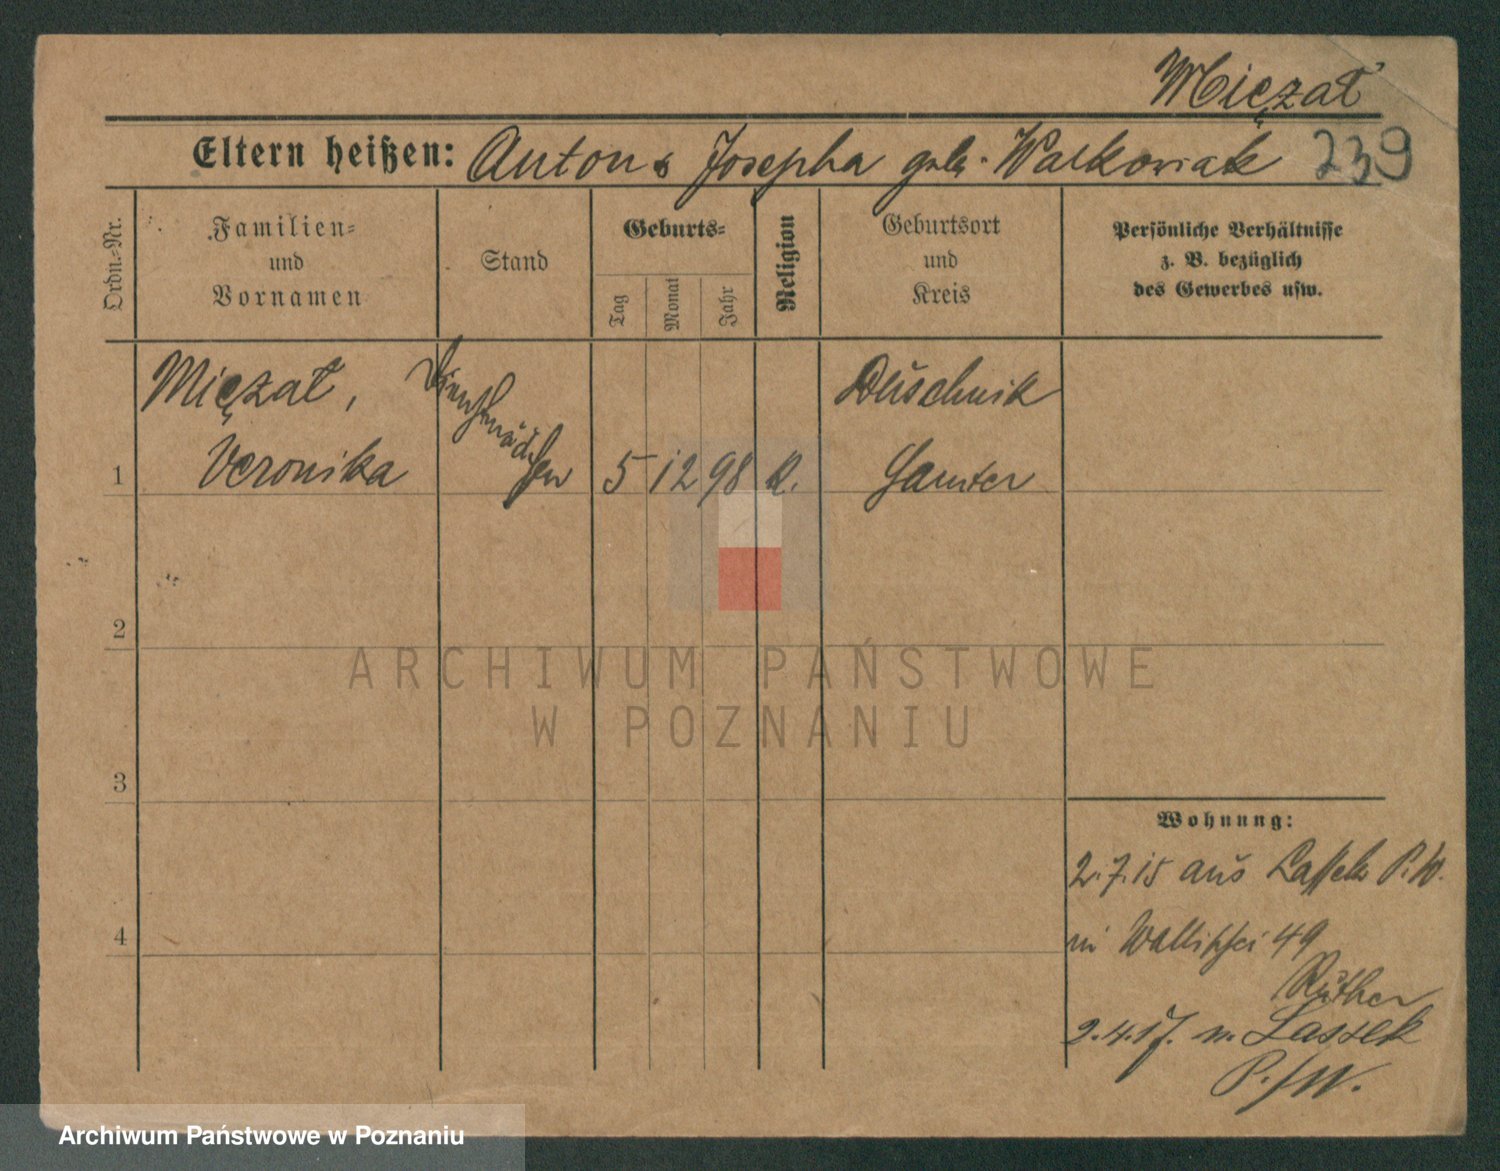 Mięzał
Eltern heißen: Anton & Josepha geb. Walkowiak 239
Ordn.-Nr.
Familien-
und
Vornamen
Stand
Geburts-
Tag
Monat
Jahr
Religion
Geburtsort
und
Kreis
Persönliche Verhältnisse
z. B. bezüglich
des Gewerbes usw.
Mięzał, Dienstmädchen Duschnik
1 Veronika 5 12 98 K. Samter
2
3
4
ARCHIWUM PAŃSTWOWE
W POZNANIU
Wohnung:
2.7.15 aus Lassek P.W.
in Wallischei 49
Rüther
2.4.17. n. Lassek
P./W.
Archiwum Państwowe w Poznaniu